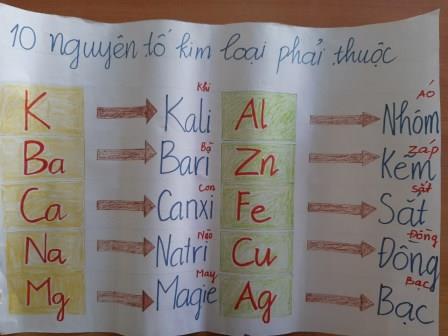 10 nguyên tố kim loại phải thuộc
Khi Áó
K Kali Al Nhôm
Bà Záp
Ba Bari Zn Kẽm
Con Sắt
Ca Canxi Fe Sắt
Nào Đồng
Na Natri Cu Đồng
May Bạc
Mg Magie Ag Bạc